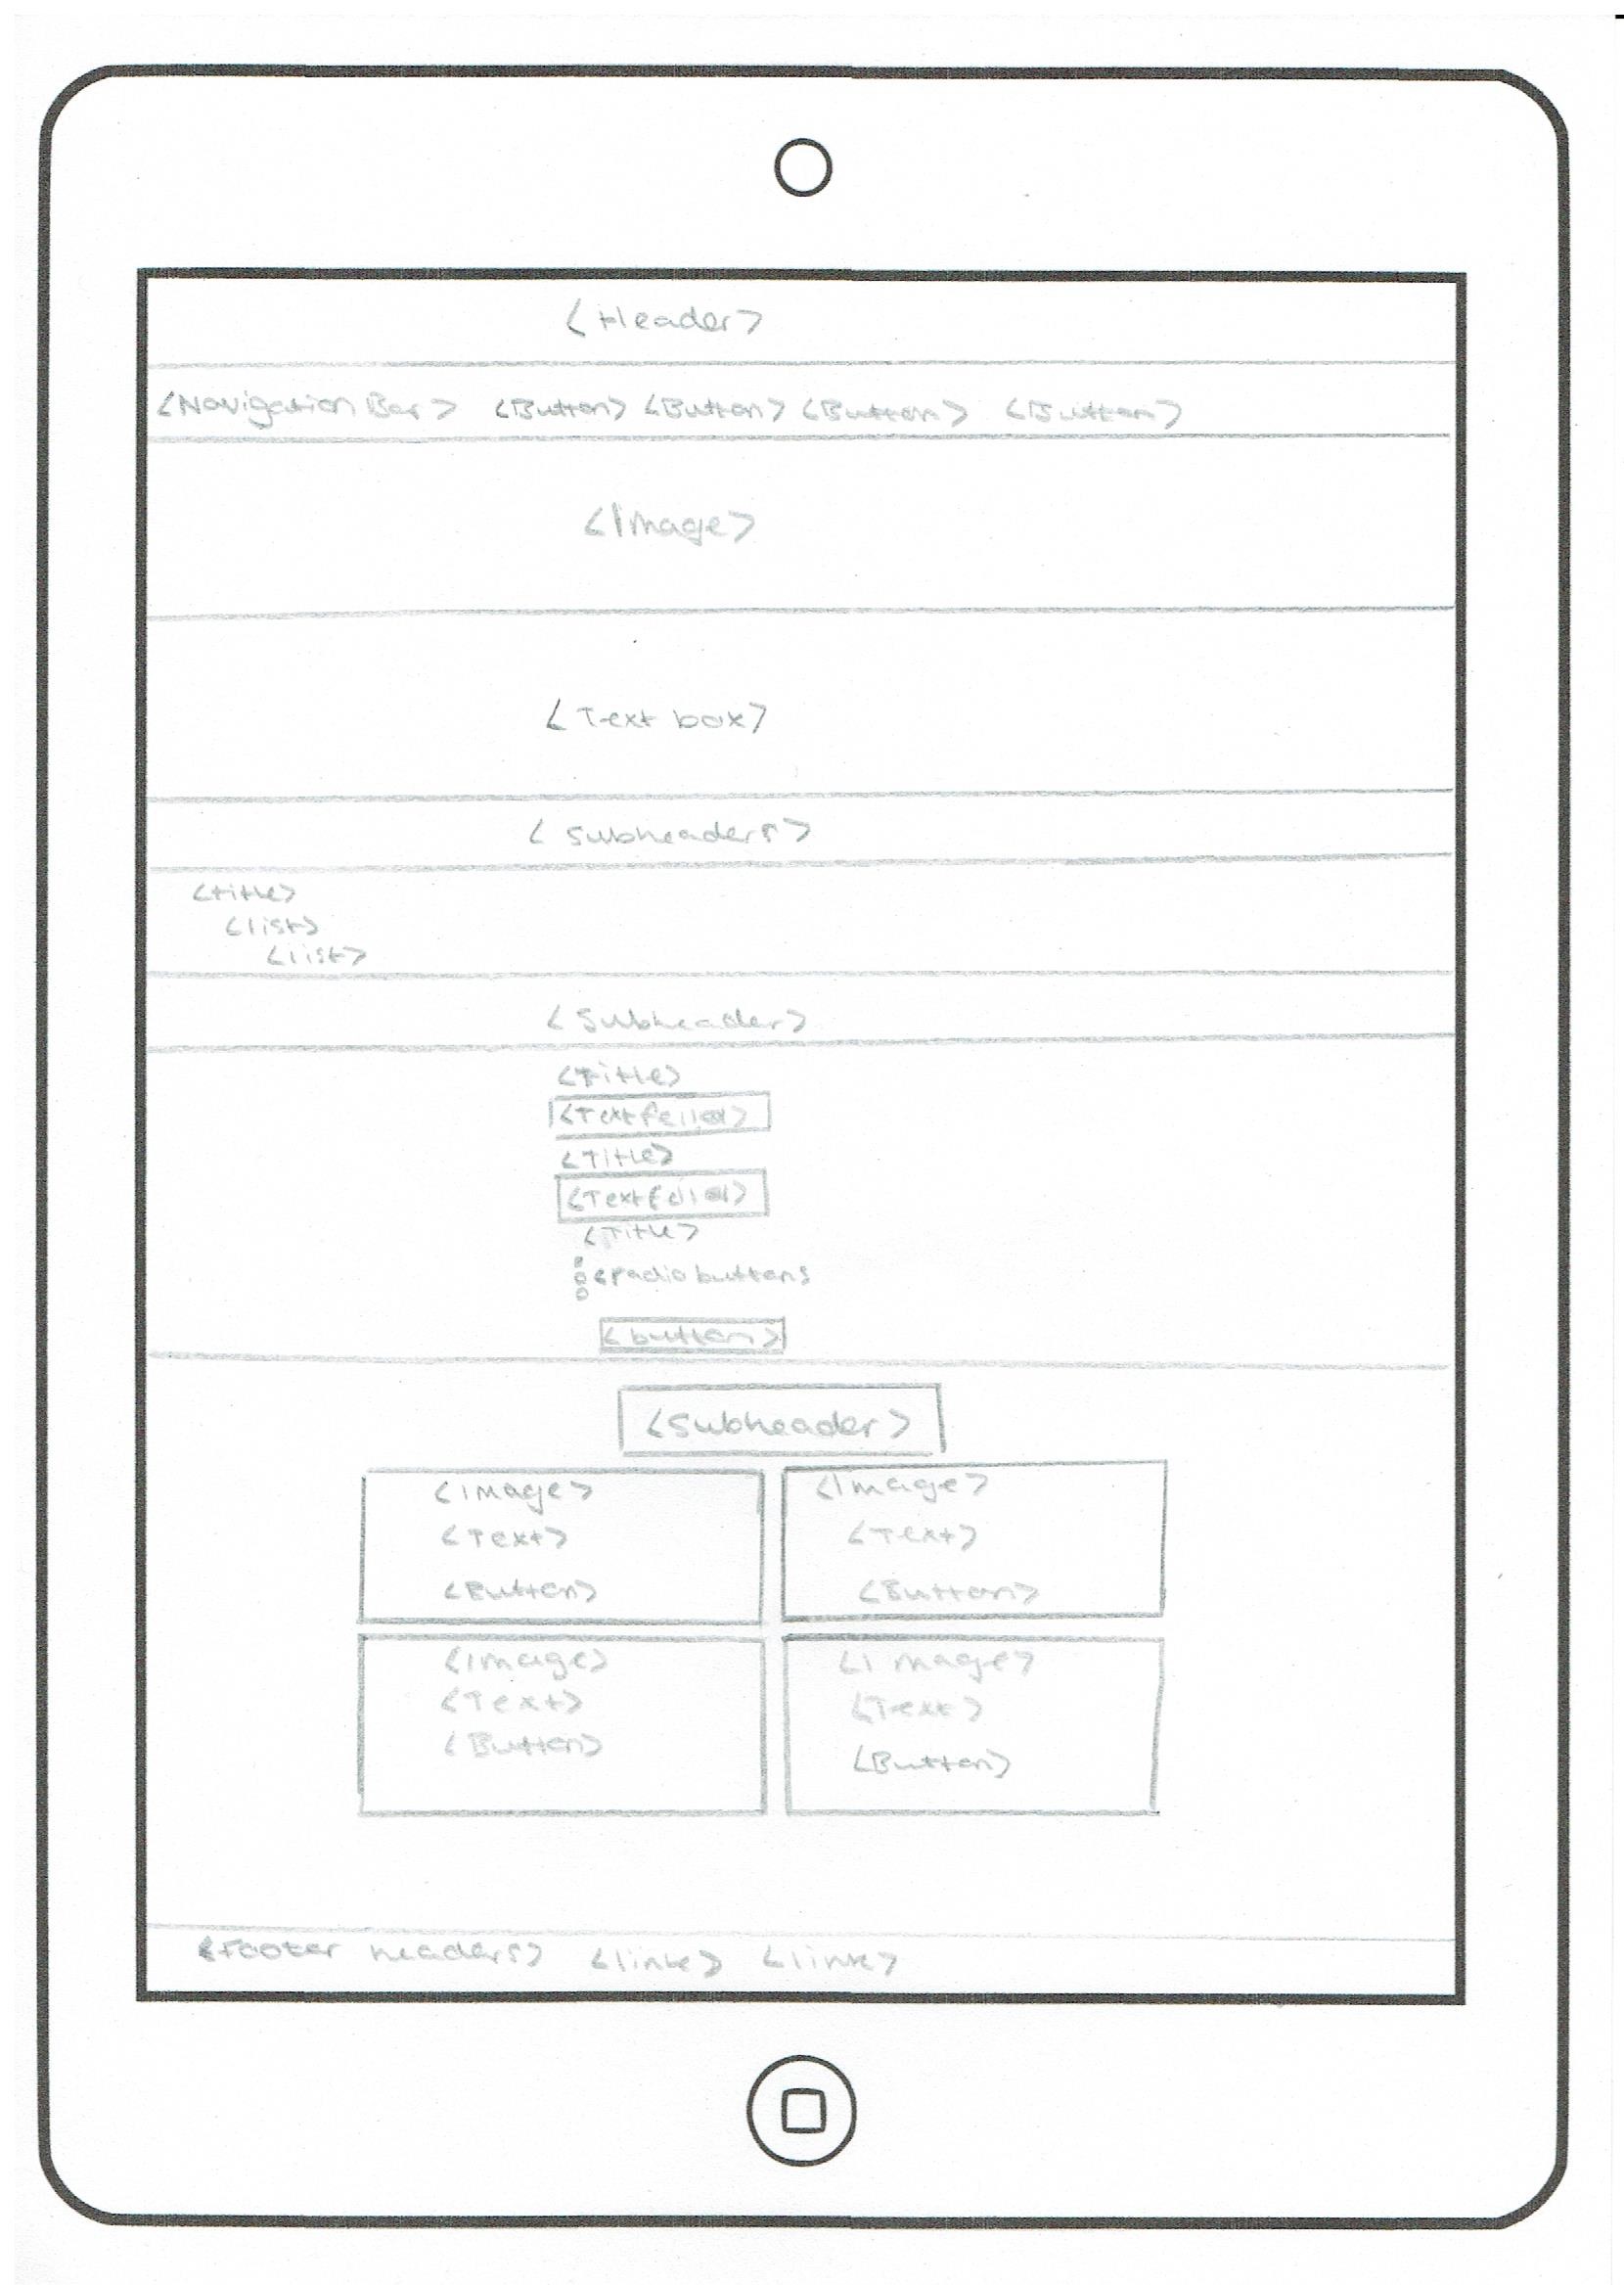 <Header>
<Navigation Bar> <Button> <Button> <Button> <Button>
<Image>
<Text box>
<Subheaders>
<title>
<list>
<list>
<Subheader>
<Title>
<Textfeild>
<Title>
<Textfeild>
<Title>
<radio buttons
<button>
<Subheader>
<Image> <Image>
<Text> <Text>
<Button> <Button>
<Image> <Image>
<Text> <Text>
<Button> <Button>
<Footer headers> <link> <link>